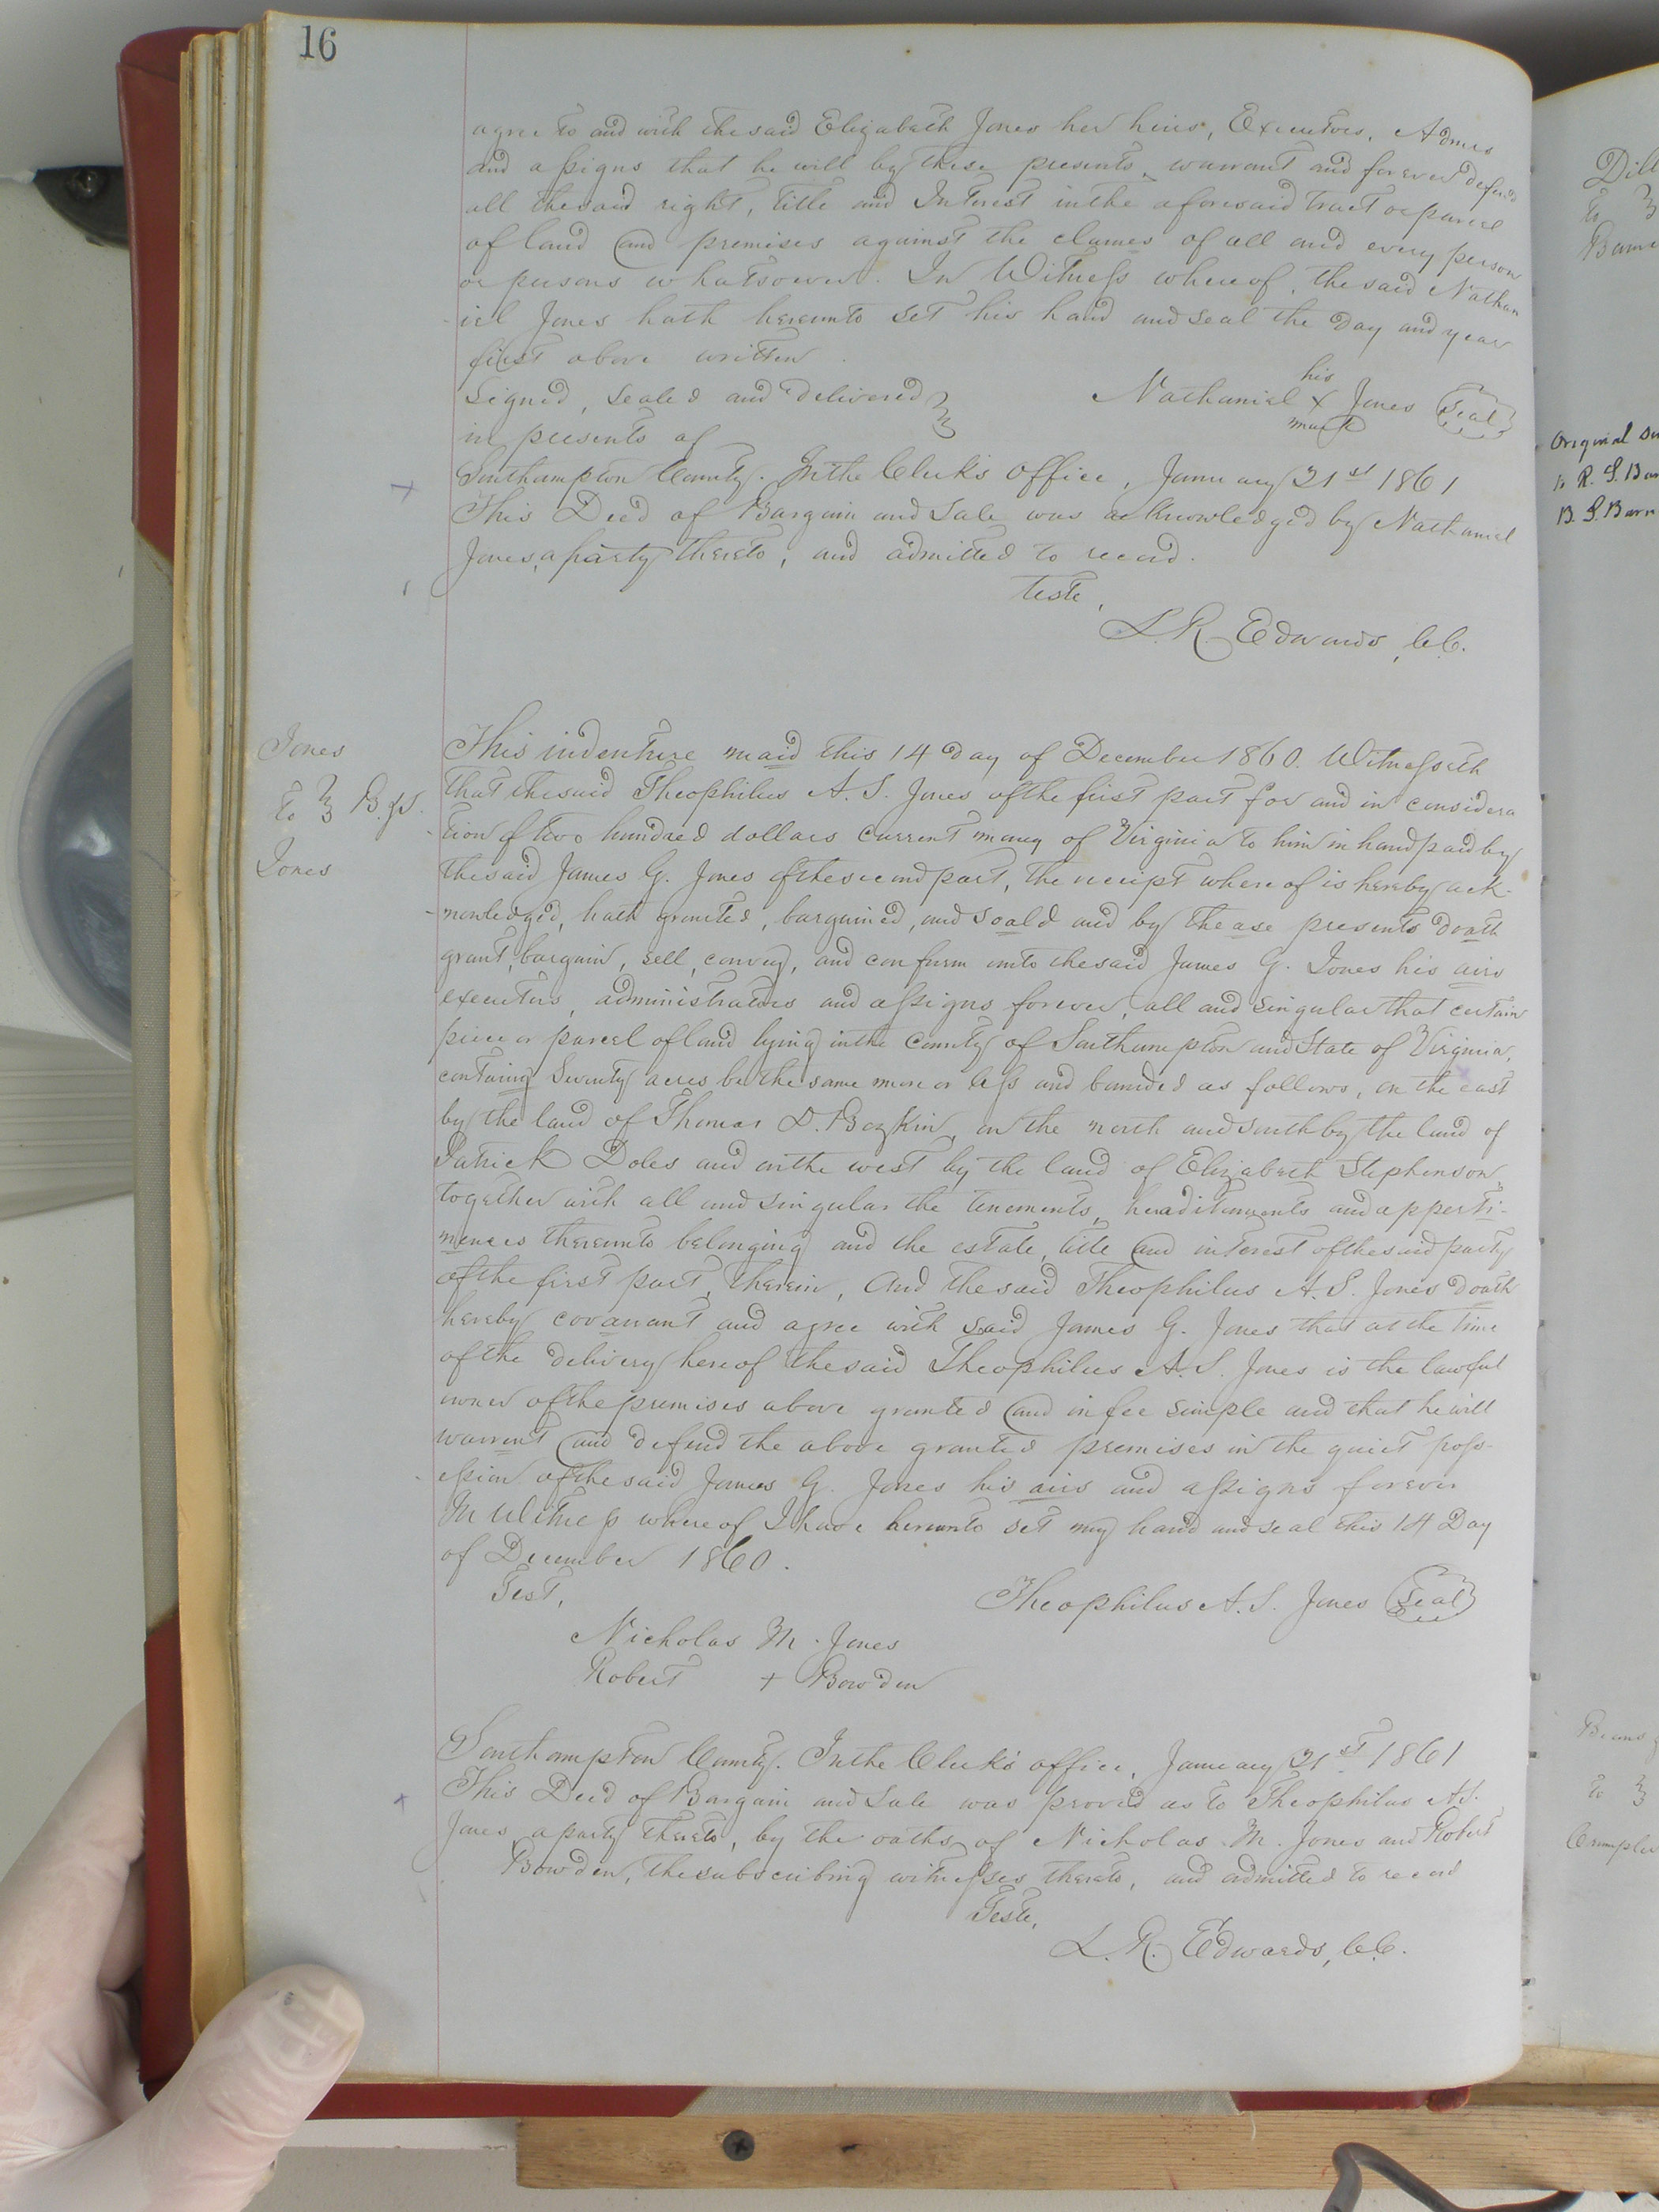 16
agree to and with the said Elizabeth Jones her heirs, Executors, Admrs
and assigns that he will by these presents, warrant and forever defend
all the said right, title and Interest in the aforesaid tract or parcel
of land and premises against the clames of all and every person
or persons whatsoever. In Witness whereof, the said Nathan
iel Jones hath hereunto set his hand and seal the day and year
first above written.
Signed, sealed and delivered
in presents of
his
Nathaniel X Jones Seal
mark
Southampton County. In the Clerk's office, January 21st 1861
This Deed of Bargain and Sale was acknowledged by Nathaniel
Jones, a party thereto, and admitted to record.
Teste,
L. R. Edwards, C.C.
Jones
to } B&S.
Jones
This indenture maid this 14 day of December 1860. Witnesseth
that the said Theophilus A. S. Jones of the first part for and in considera
tion of two hundred dollars current money of Virginia to him in hand paid by
the said James G. Jones of the second part, the receipt where of is hereby ack-
nowledged, hath granted, bargained, and soald and by thease presents doath
grant, bargain, sell, convey, and confurm unto the said James G. Jones his airs
executors, administrators and assigns forever, all and singular that certain
piece or parcel of land lying in the County of Southampton and State of Virginia,
containg Seventy acres be the same more or less and bounded as follows, on the east
by the land of Thomas D. Boykin, on the north and south by the land of
Patrick Doles and on the west by the land of Elizabeth Stephenson,
together with all and singular the tenements, heraditaments and apperti-
nences thereunto belonging and the estate, title and interest of the said party
of the first part, therein, And the said Theophilus A. S. Jones doath
hereby covanant and agree with said James G. Jones that at the time
of the delivery hereof the said Theophilus A. S. Jones is the lawful
owner of the premises above granted and in fee simple and that he will
warrent and defend the above granted premises in the quiet poss-
ession of the said James G. Jones his airs and assigns forever
In Witness where of I have hereunto set my hand and seal this 14 Day
of December 1860.
Test,
Theophilus A. S. Jones Seal
Nicholas M. Jones
Robert + Bowden
Southampton County. In the Clerk's office, January 21st 1861
This Deed of Bargain and Sale was proved as to Theophilus A. S.
Jones, a party thereto, by the oaths of Nicholas M. Jones and Robert
Bowden, the subscribing witnesses thereto, and admitted to record
Teste,
L. R. Edwards, C.C.
Dill
to
Original
to R. S.
B. S.
to